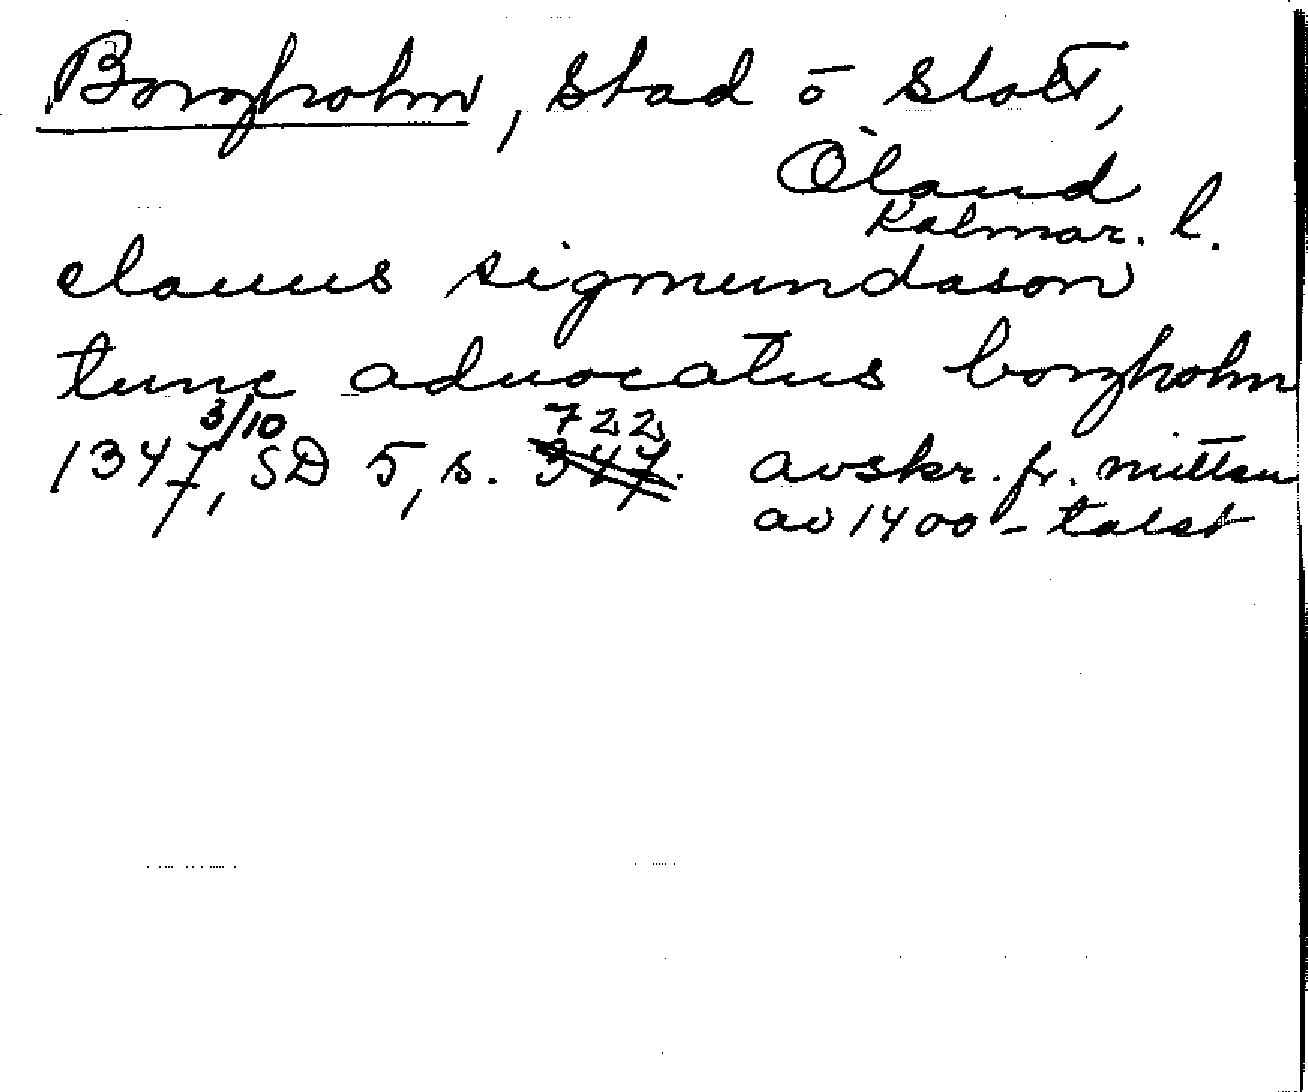 Borgholm, stad o slott,
Öland
Kalmar. l.
clauus sigmundason
tunc aduocatus borgholm
1347 3/10, SD 5, s. 347. 722 avskr. fr. mitten
av 1400-talet